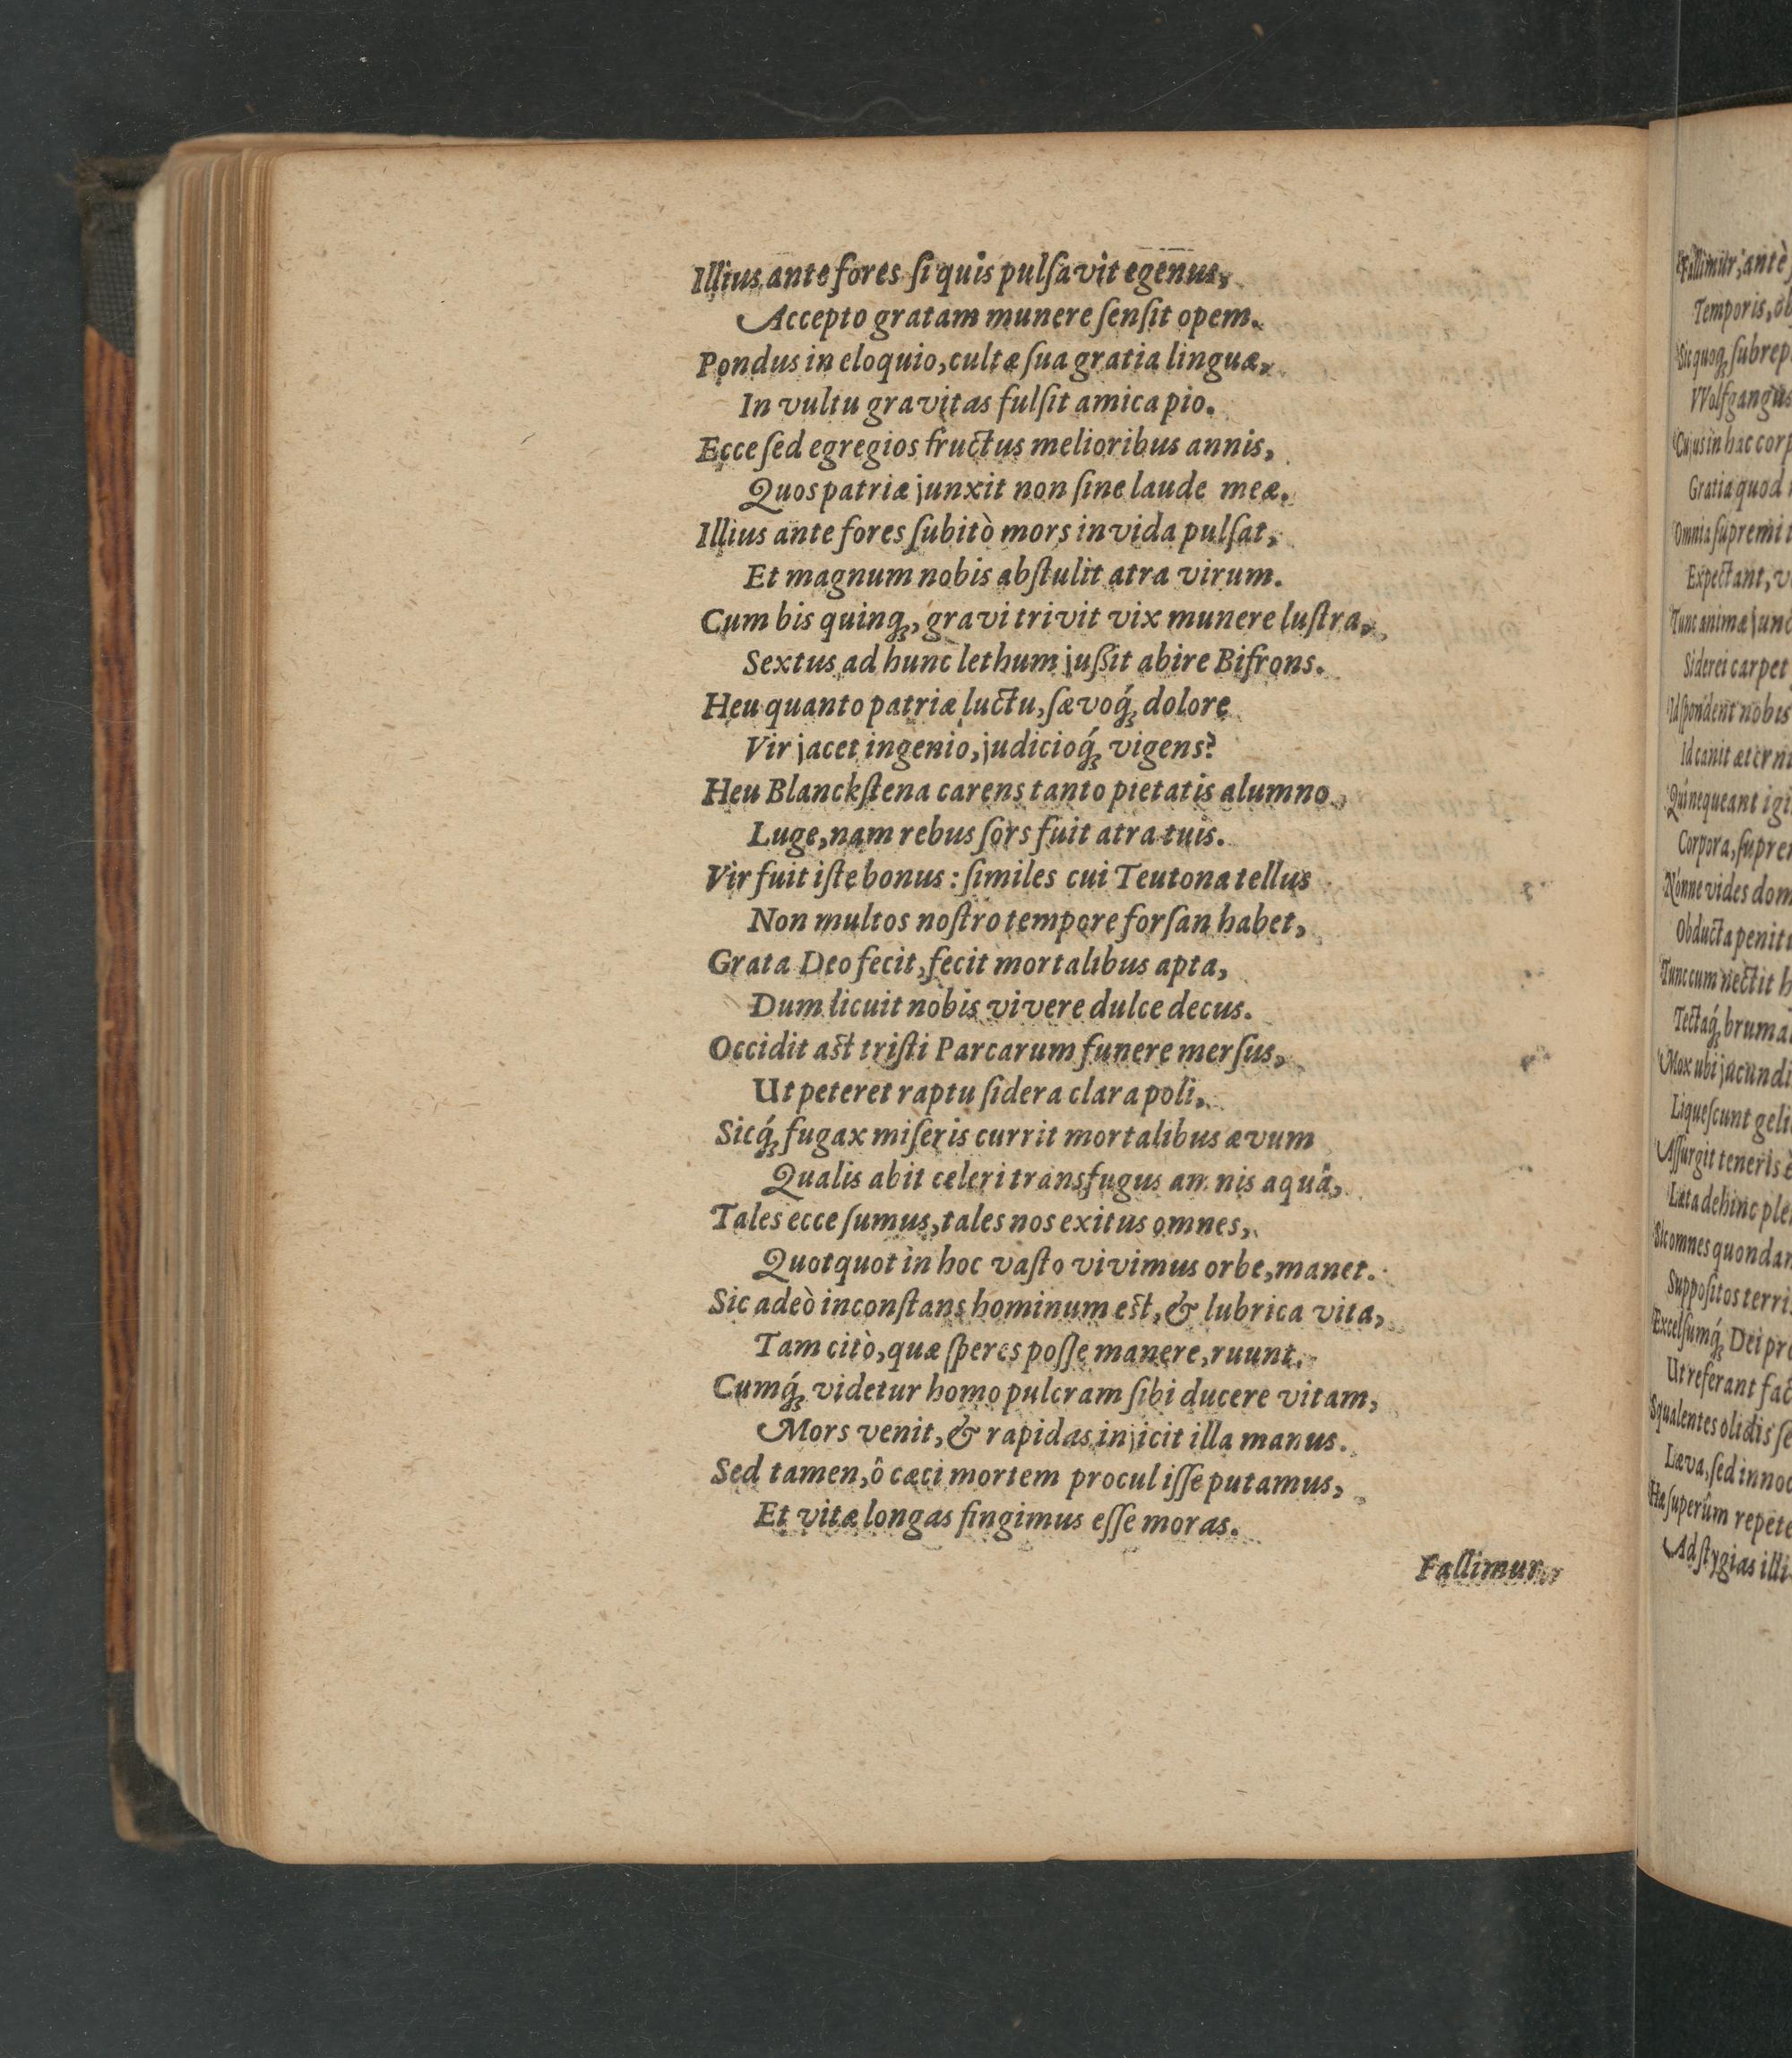 Illius ante fores ſi quis pulſavit egenus,
Accepto gratam munere ſenſit opem.
Pondus in eloquio, cultæ ſua gratia linguæ,
In vultu gravitas fulſit amica pio.
Ecce ſed egregios fructus melioribus annis,
Quos patriæ junxit non ſine laude meæ.
Illius ante fores ſubitò mors invida pulſat,
Et magnum nobis abſtulit atra virum.
Cum bis quinq́ꝫ, gravi trivit vix munere luſtra,
Sextus ad hunc lethum juſſit abire Bifrons.
Heu quanto patriæ luctu, ſævoq́ꝫ dolore
Vir jacet ingenio, judicioq́ꝫ vigens?
Heu Blanckſtena carens tanto pietatis alumno,
Luge, nam rebus ſors fuit atra tuis.
Vir fuit iſte bonus: ſimiles cui Teutona tellus
Non multos noſtro tempore forſan habet,
Grata Deo fecit, fecit mortalibus apta,
Dum licuit nobis vivere dulce decus.
Occidit aſt triſti Parcarum funere merſus,
Ut peteret raptu ſidera clara poli,
Sicq́ꝫ fugax miſeris currit mortalibus ævum
Qualis abit celeri transfugus amnis aquâ,
Tales ecce ſumus, tales nos exitus omnes,
Quotquot in hoc vaſto vivimus orbe, manet.
Sic adeò inconſtans hominum eſt, & lubrica vita,
Tam citò, quæ ſperes poſſe manere, ruunt.
Cumq́ꝫ videtur homo pulcram ſibi ducere vitam,
Mors venit, & rapidas injicit illa manus.
Sed tamen, ô cæci mortem procul iſſe putamus,
Et vitæ longas fingimus eſſe moras.
Fallimur,
Fallimur, antè
Temporis,
Sic quoq́ꝫ
VVolfgangus
Cujus in hac
Gratia quod
Omnia ſupremi
Expectant,
Tunc animæ
Siderei carpet
nobis
Id canit
nequeant
Corpora,
Nonne vides
Obducta
Tunc cum nectit
Tectaq́ꝫ
Mox ubi
Liqueſcunt
Aſſurgit teneris
Læta dehinc
Sic omnes
Suppoſitos
Excelſumq́ꝫ Dei
Ut referant
Squalentes olidis
Læva, ſed
Hæ ſuperûm
Ad ſtygias